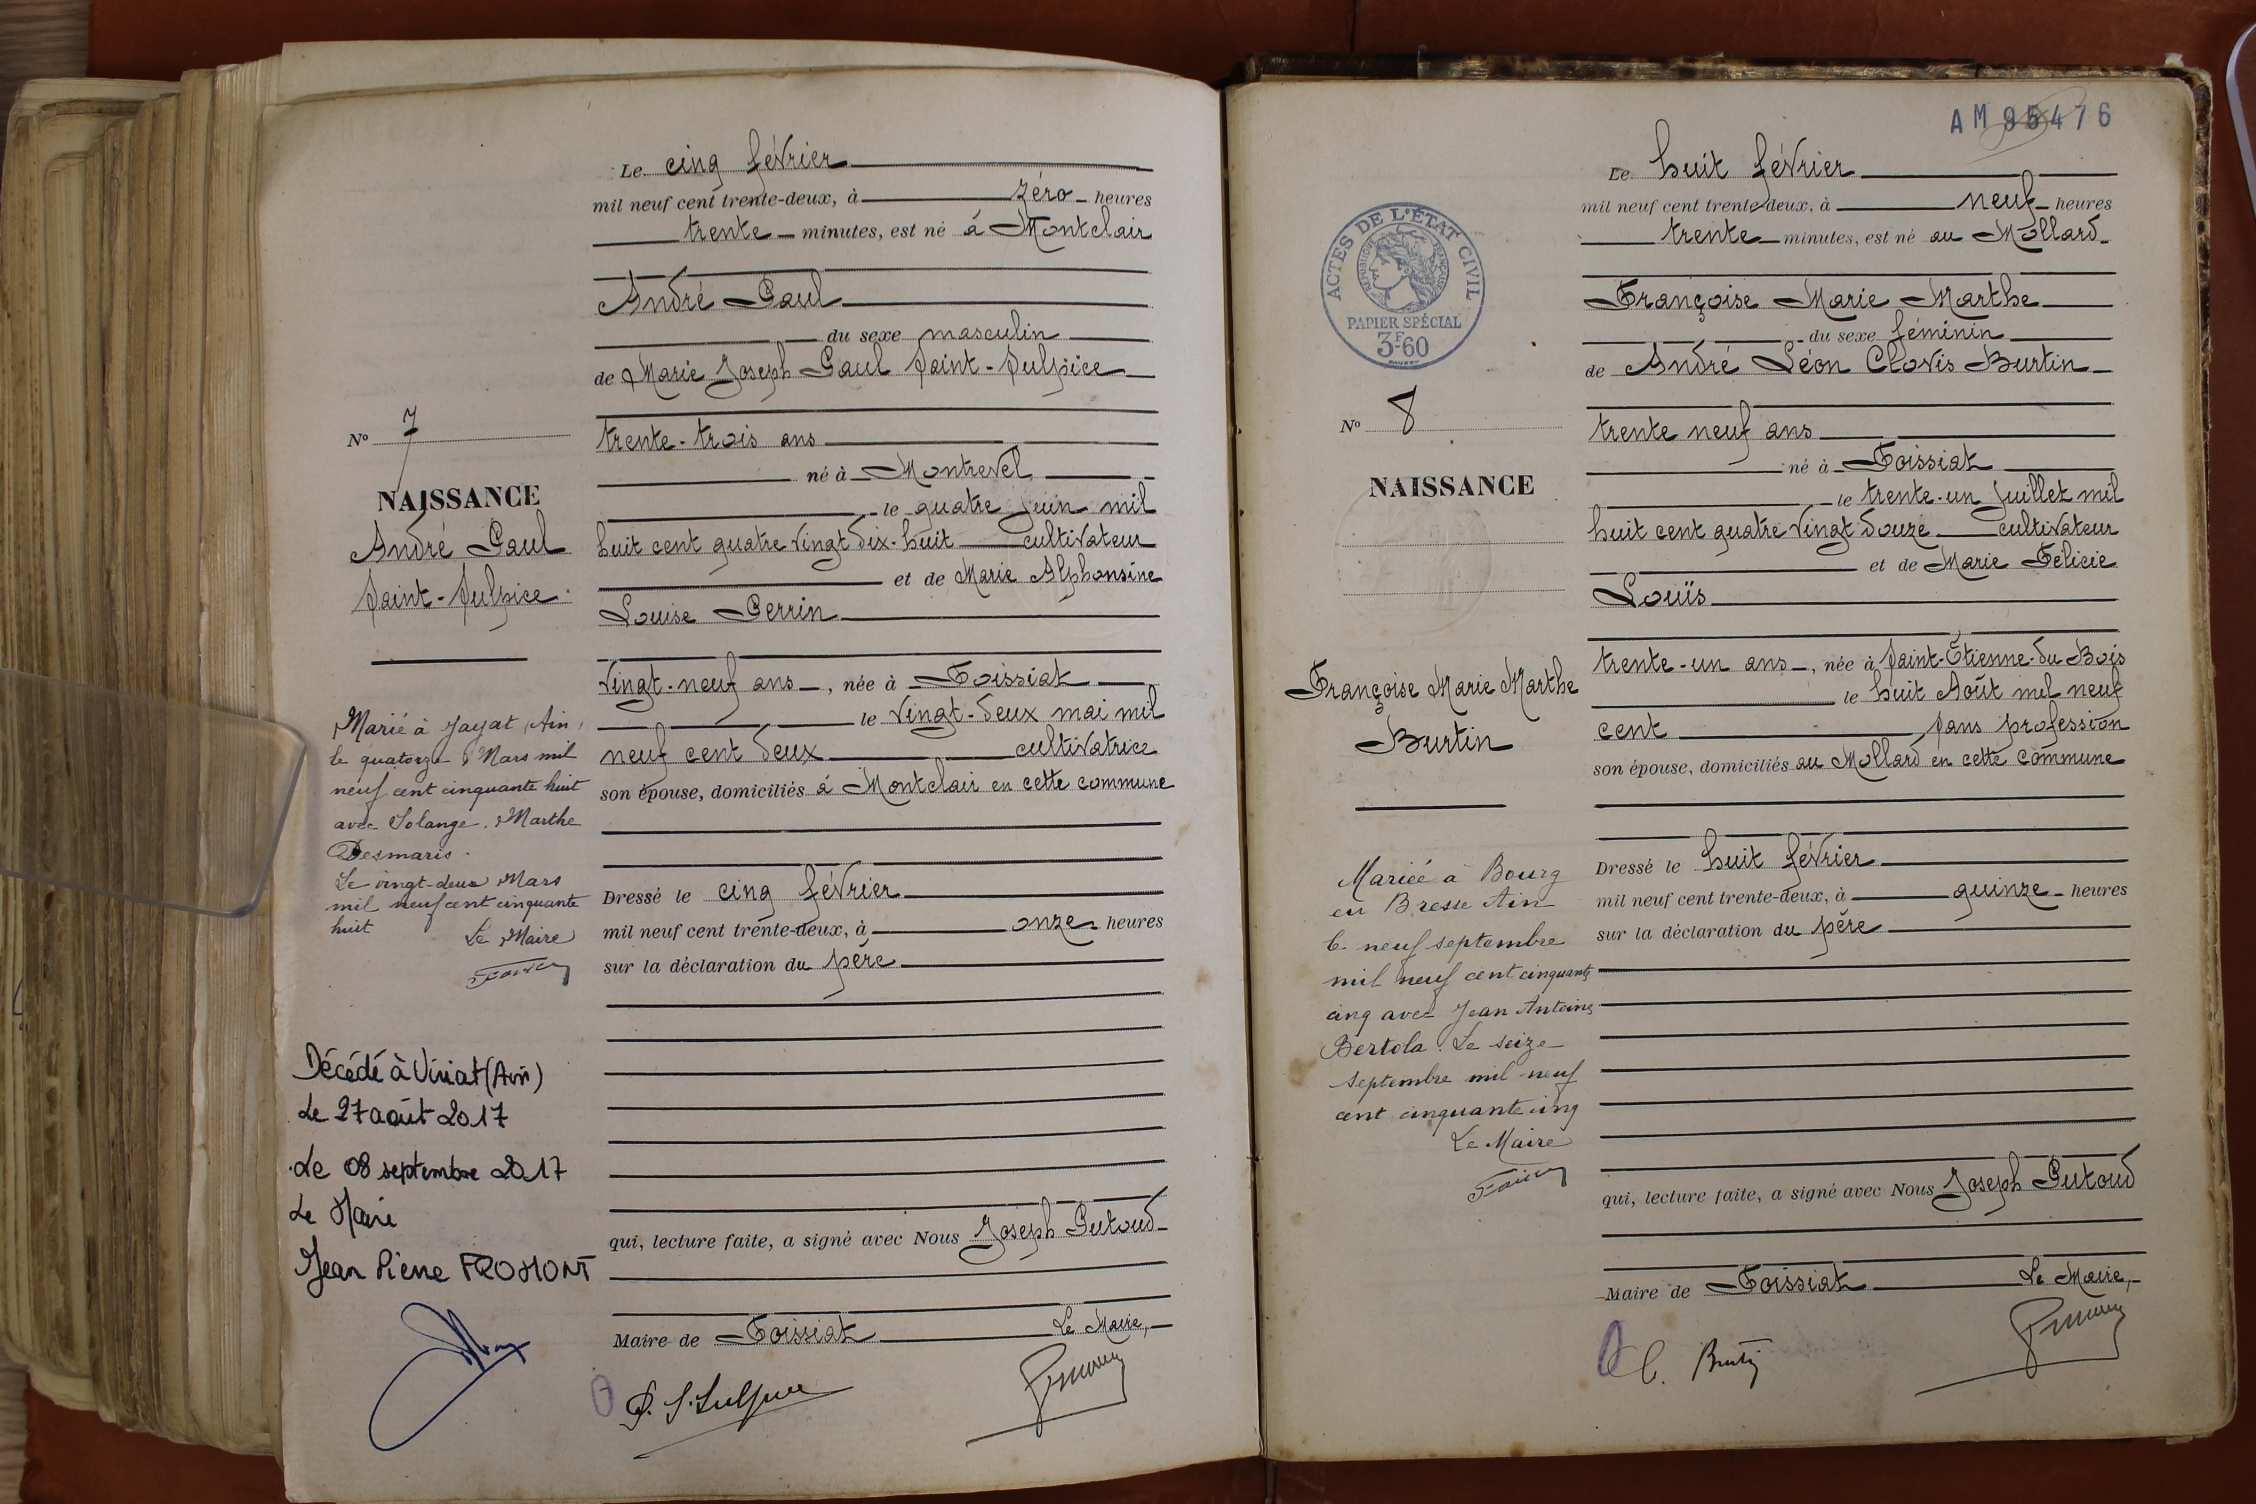 Le cinq février
mil neuf cent trente-deux, à zéro heures
trente minutes, est né à Montclair
André Paul
du sexe masculin
de Marie Joseph Paul Saint-Sulpice
trente-trois ans
né à Montrevel
le quatre juin mil
huit cent quatre vingt dix-huit cultivateur
et de Marie Alphonsine
Louise Perrin
vingt-neuf ans, née à Foissiat
le vingt-deux mai mil
neuf cent deux cultivatrice
son épouse, domiciliés à Montclair en cette commune
Dressé le cinq février
mil neuf cent trente-deux, à onze heures
sur la déclaration du père
qui, lecture faite, a signé avec Nous Joseph Putoud
Maire de Foissiat Le Maire,
Nº 7
NAISSANCE
André Paul
Saint-Sulpice
Marié à Jayat, Ain,
le quatorze Mars mil
neuf cent cinquante huit
avec Solange, Marthe
Desmaris.
Le vingt-deux Mars
mil neuf cent cinquante
huit
Le Maire
Décédé à Viriat (Ain)
Le 27 août 2017
Le 08 septembre 2017
Le Maire
Jean Pierre FROMONT
AM 95476
Le huit février
mil neuf cent trente deux, à neuf heures
trente minutes, est né au Mollard
Françoise Marie Marthe
du sexe féminin
de André Léon Clovis Burtin
trente neuf ans
né à Foissiat
le trente-un juillet mil
huit cent quatre vingt douze cultivateur
et de Marie Felicie
Louïs
trente-un ans, née à Saint-Étienne-du Bois
le huit Août mil neuf
cent sans profession
son épouse, domiciliés au Mollard en cette commune
Dressé le huit février
mil neuf cent trente-deux, à quinze heures
sur la déclaration du père
qui, lecture faite, a signé avec Nous Joseph Putoud
Maire de Foissiat Le Maire,
ACTES DE L'ÉTAT CIVIL
RÉPUBLIQUE FRANÇAISE
PAPIER SPÉCIAL
3F60
Nº 8
NAISSANCE
Françoise Marie Marthe
Burtin
Mariée à Bourg
en Bresse Ain
le neuf septembre
mil neuf cent cinquante
cinq avec Jean Antoine
Bertola. Le seize
septembre mil neuf
cent cinquante cinq
Le Maire